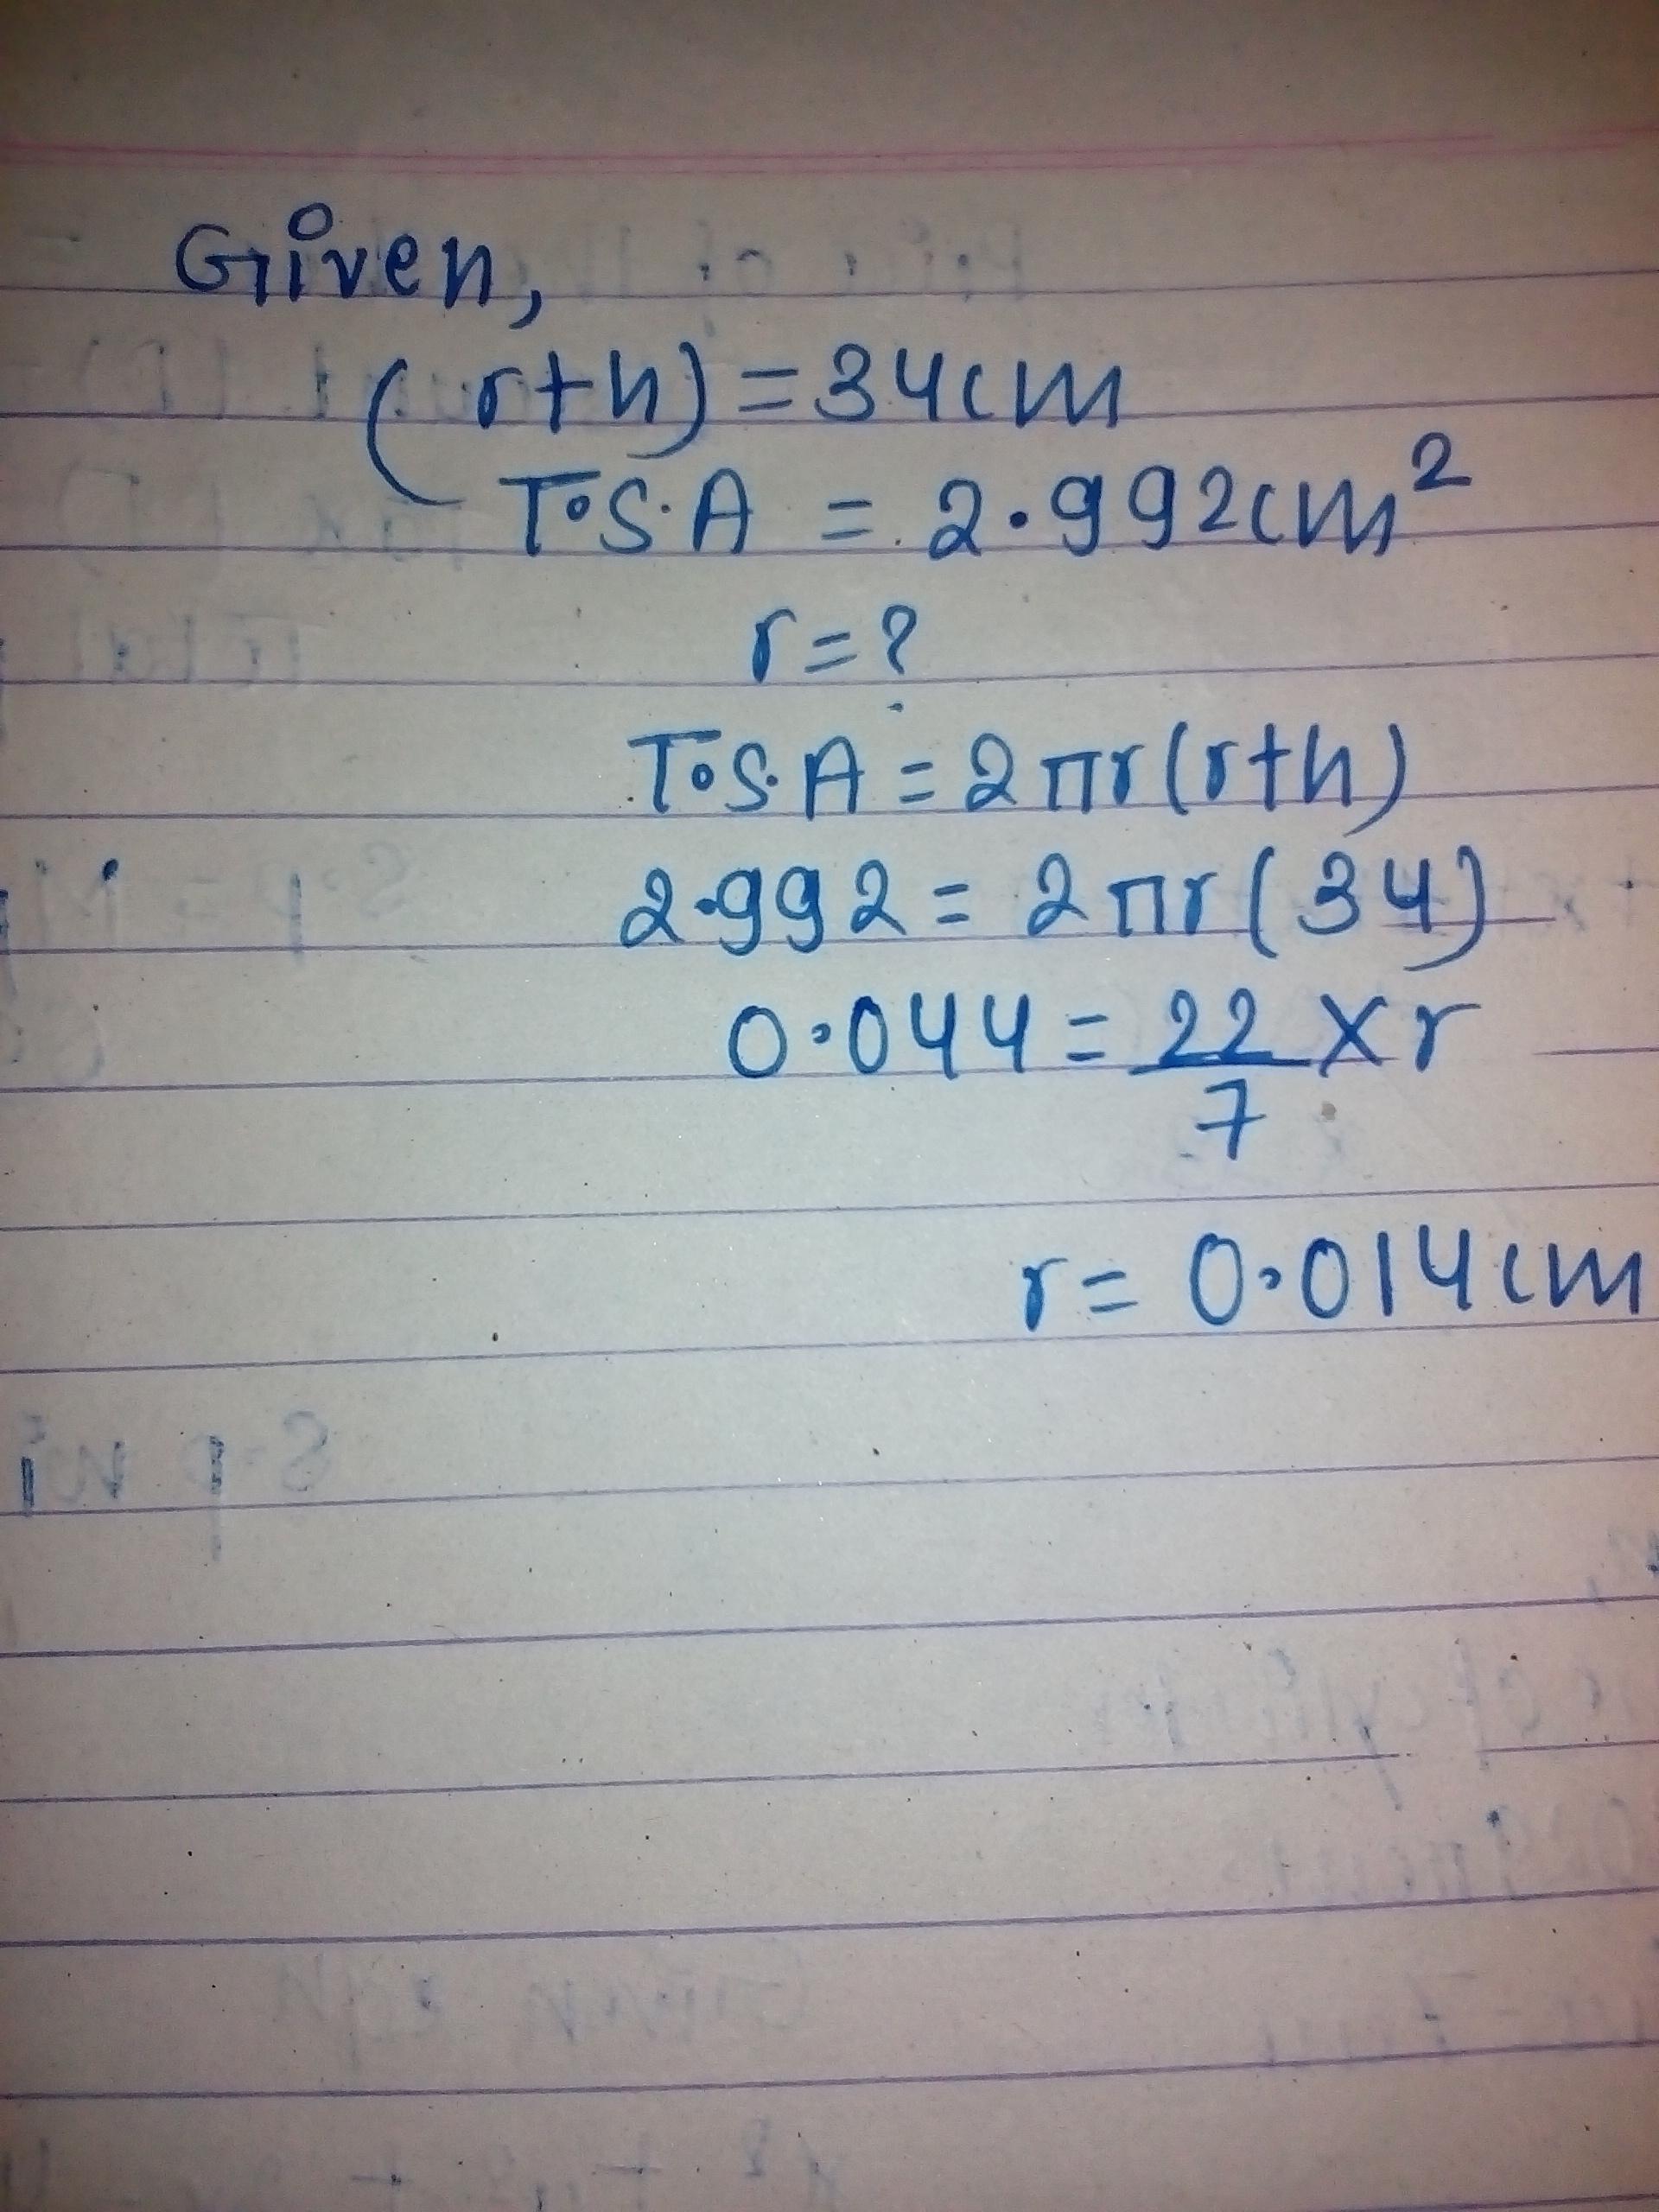 Given,
(r+h) = 34cm
T.S.A = 2.992cm²
r = ?
T.S.A = 2πr(r+h)
2.992 = 2πr(34)
0.044 = 22/7 × r
r = 0.014cm